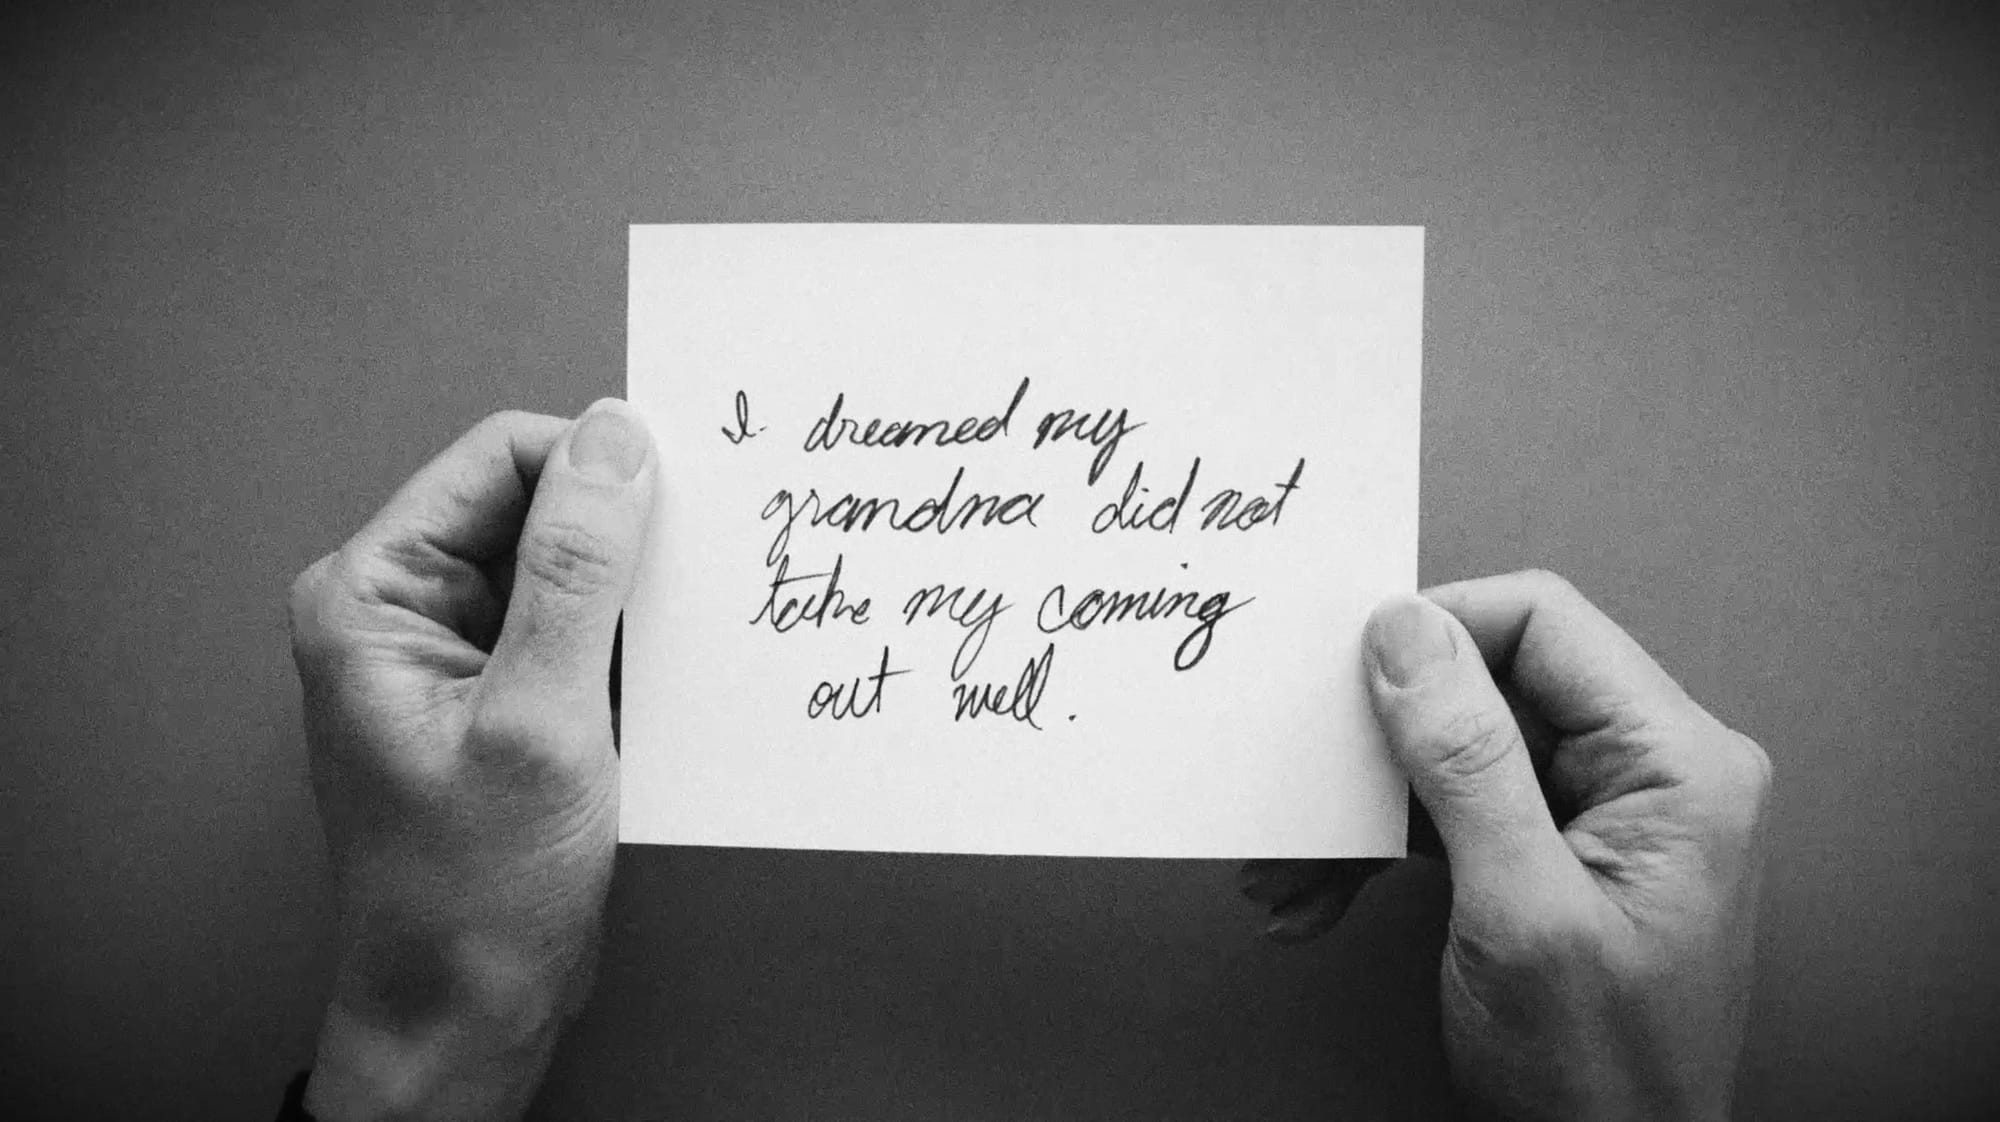 I dreamed my
grandma did not
take my coming
out well.